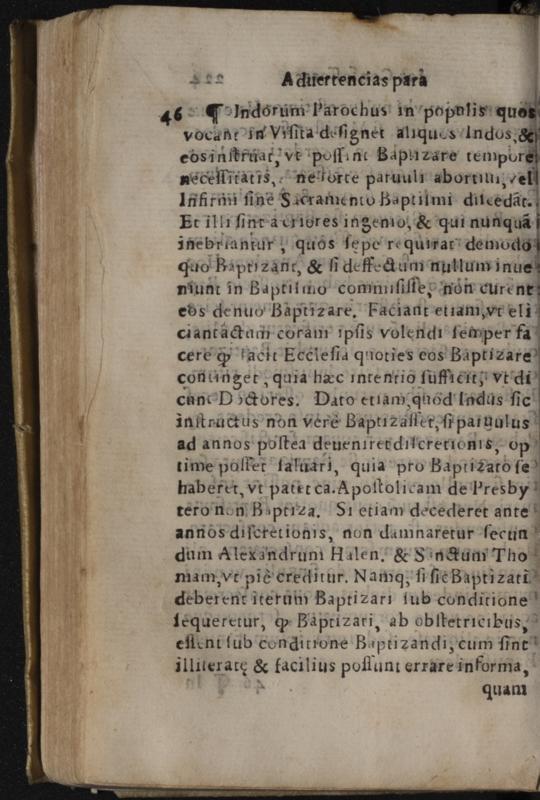 Aduertencias para
46 ¶ Indorum Parochus in populis quos
vocant in Visita designet aliquos Indos, &
eos instruat, vt possint Baptizare tempore
necessitatis, ne forte paruuli abortiui, vel
Infirmi sine Sacramento Baptismi discedāt.
Et illi sint acriores ingenio, & qui nunquā
inebriantur, quos sepe requirat de modo
quo Baptizant, & si deffectum nullum inue
niunt in Baptismo commisisse, non curent
eos denuo Baptizare. Faciant etiam, vt eli
ciant actum coram ipsis volendi semper fa
cere ꝙ facit Ecclesia quoties eos Baptizare
continget, quia hæc intentio sufficit, vt di
cunt Doctores. Dato etiam, quod Indus sic
instructus non verè Baptizasset, si paruulus
ad annos postea deueniret discretionis, op
time posset saluari, quia pro Baptizato se
haberet, vt patet ca. Apostolicam de Presby
tero non Baptiza. Si etiam decederet ante
annos discretionis, non damnaretur secun
dum Alexandrum Halen. & Sanctum Tho
mam, vt piè creditur. Namq; si sic Baptizati
deberent iterum Baptizari sub conditione
sequeretur, ꝙ Baptizati, ab obstetricibus,
essent sub conditione Baptizandi, cum sint
illiteratę & facilius possunt errare in forma,
quam